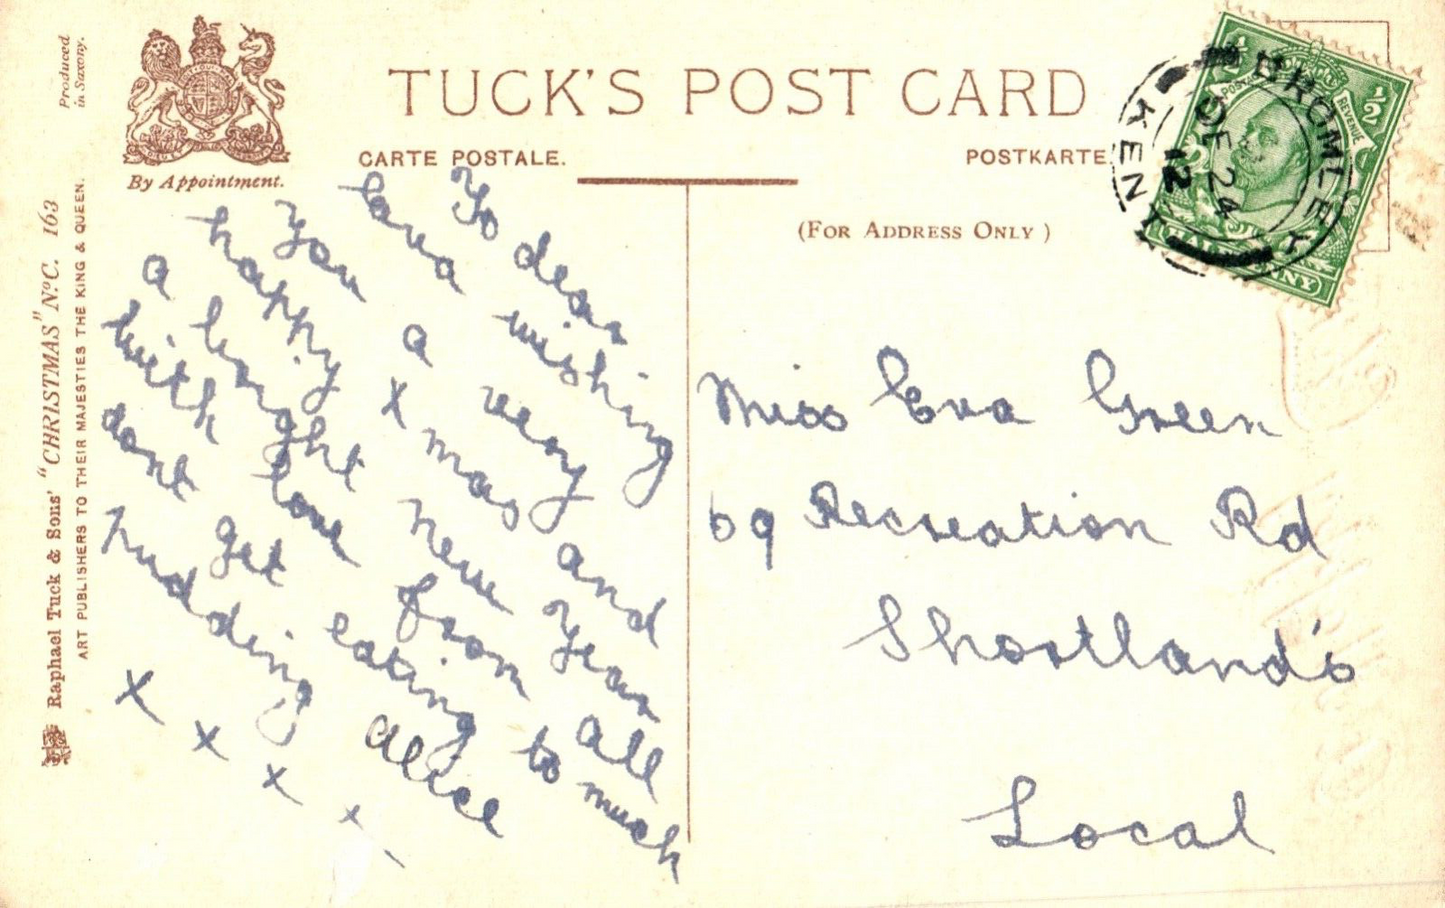 Produced
in Saxony.
By Appointment.
Raphael Tuck & Sons' "CHRISTMAS" No. C. 163
ART PUBLISHERS TO THEIR MAJESTIES THE KING & QUEEN.
TUCK'S POST CARD
CARTE POSTALE.
POSTKARTE.
(FOR ADDRESS ONLY)
To dear
Eva wishing
You a very
happy Xmas and
a bright New Year
with love from all
dont get eating to much
pudding Alice
x x x x
Miss Eva Green
69 Recreation Rd
Shortland's
Local
BROMLEY
KENT
DE 24
12
½
½
POSTAGE
REVENUE
HALFPENNY